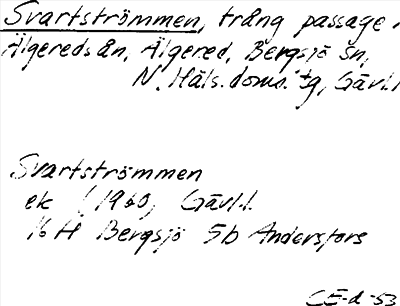 Svartströmmen, trång passage i
Älgeredsån, Älgered, Bergsjö sn,
N. Häls. doms. tg, Gävl.l
Svartströmmen
ek (1960) Gävl.l.
16 H Bergsjö 5b Andersfors
CE-d -53